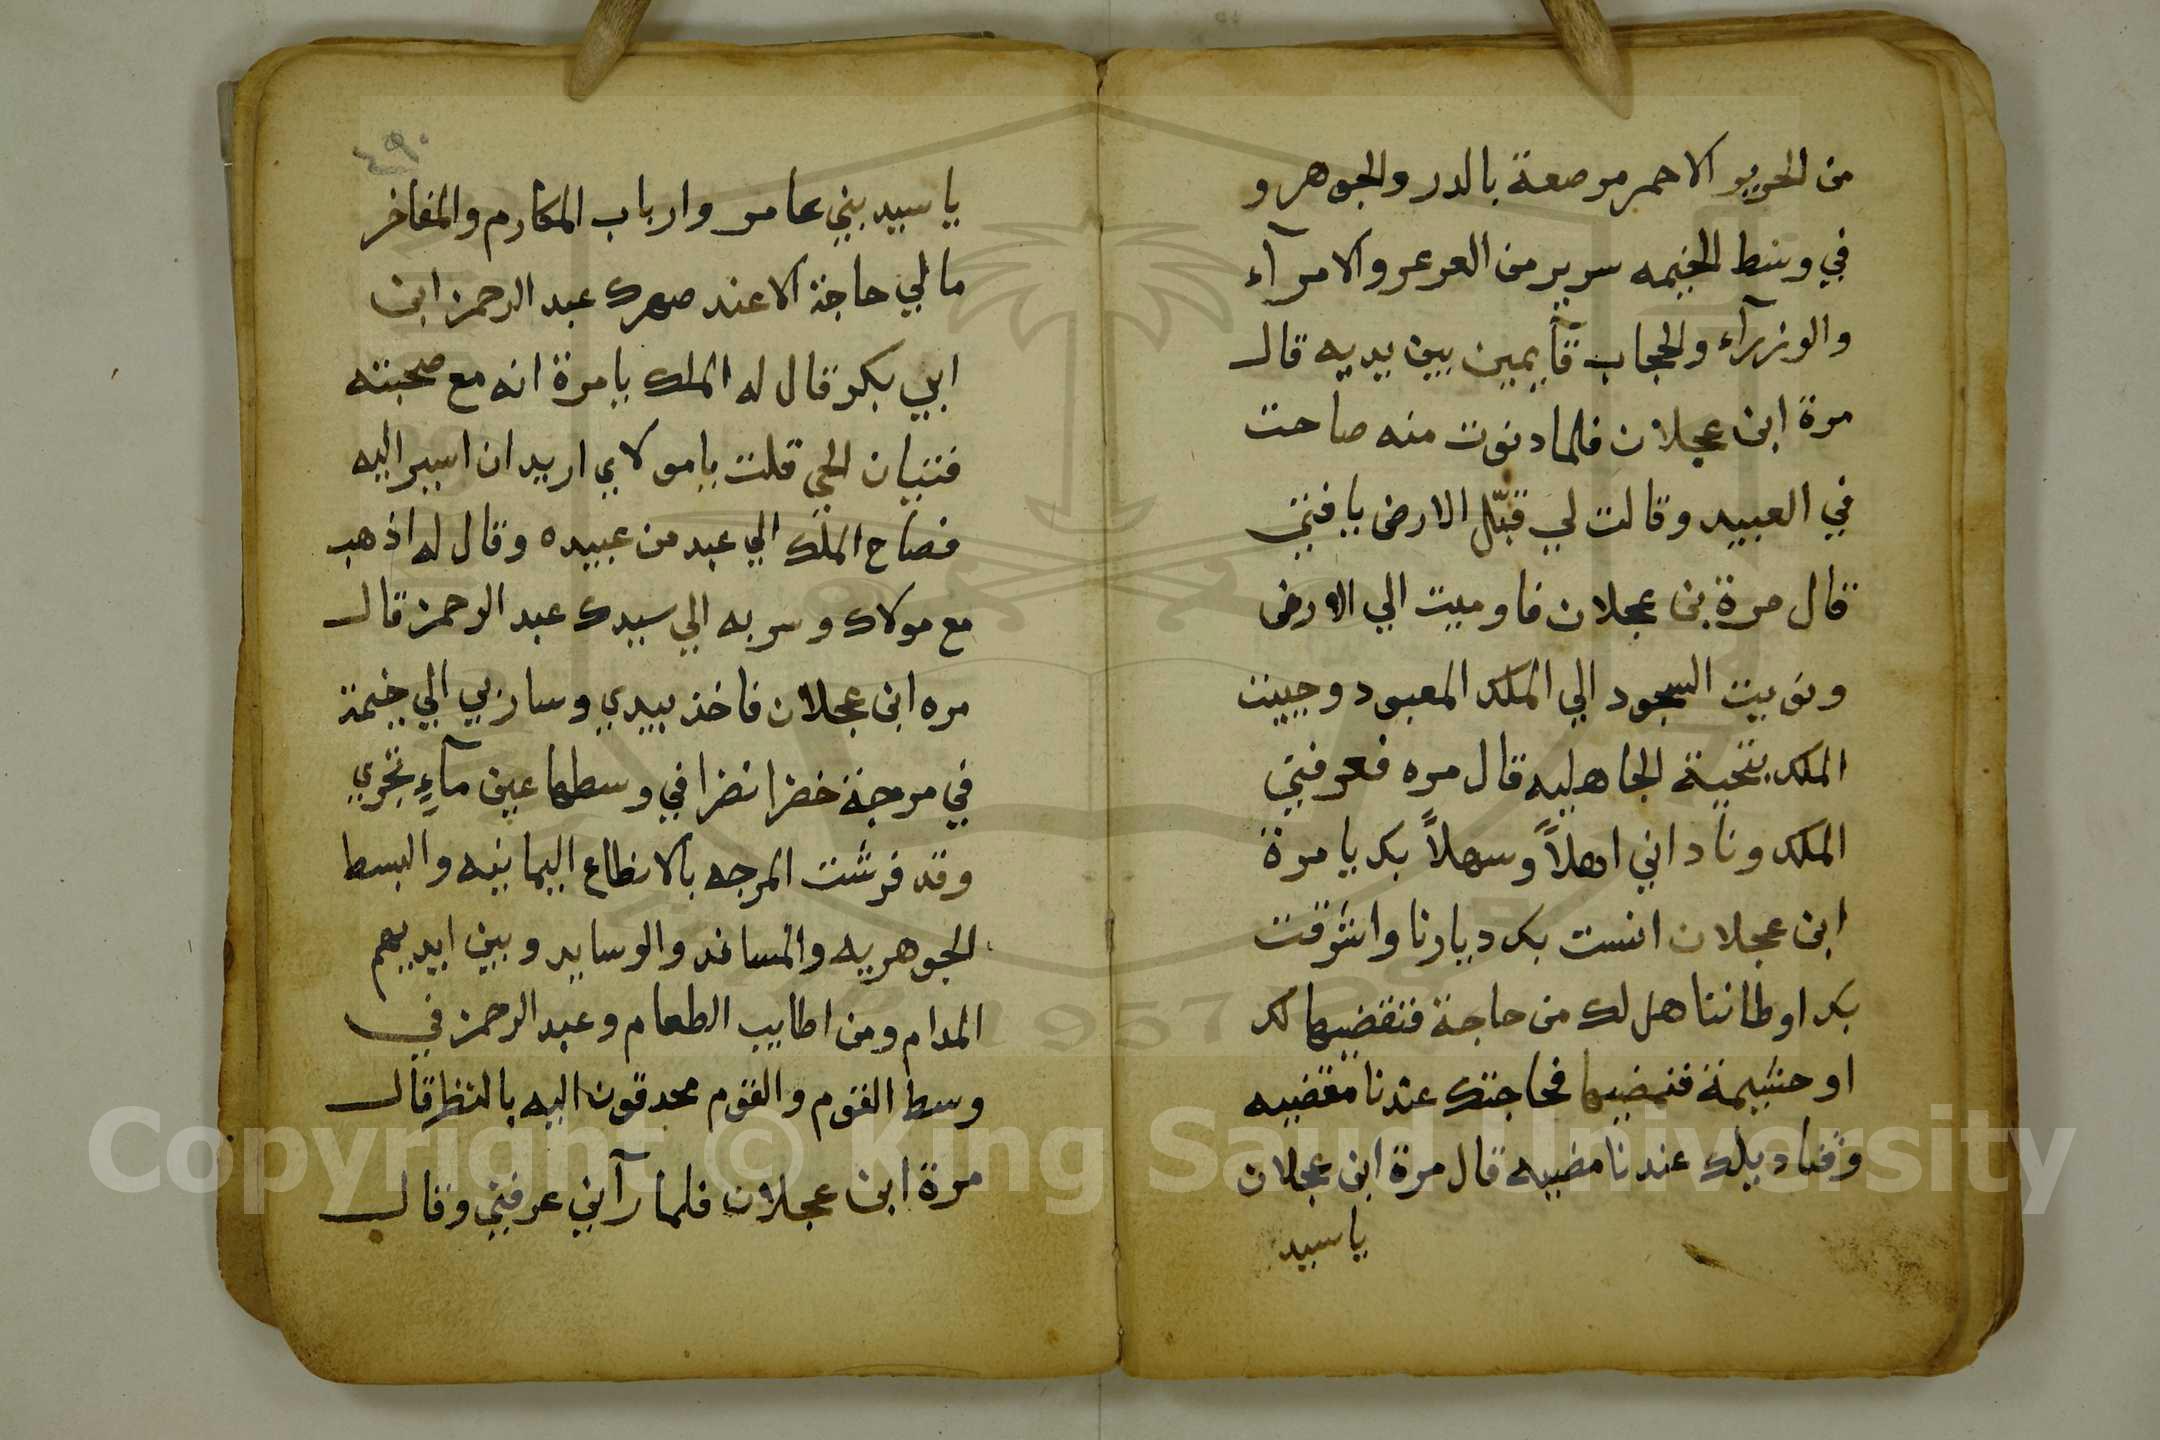 من الحرير الاحمر مرصعة بالدر والجوهر و
في وسط الخيمه سرير من العرعر والامرآء
والوزرآء والحجاب قآيمين بين يديه قال
مرة ابن عجلان فلما دنوت منه صاحت
في العبيد وقالت لي قبّل الارض يا فتي
قال مرة بن عجلان فاوميت الي الارض
ونويت السجود الي الملك المعبود وحييت
الملك بتحية الجاهليه قال مره فعرفني
الملك وناداني اهلاً وسهلاً بك يا مرة
ابن عجلان انست بك ديارنا واشرقت
بك اوطاننا هل لك من حاجة فنقضيها لك
او حشيمة فنمضيها فحاجتك عندنا مقضيه
عندنا مضيه قال مرة ابن عجلان
يا سيد
٤٩٠
يا سيد بني عامر وارباب المكارم والمفاخر
مالي حاجة الا عند صهرك عبد الرحمن ابن
ابي بكر قال له الملك يا مرة انه مع صحبته
فتيان الحي قلت يا مولاي اريد ان اسير اليه
فصاح الملك الي عبد من عبيده وقال له اذهب
مع مولاك وسر به الي سيدك عبد الرحمن قال
مره ابن عجلان فاخذ بيدي وسار بي الي خيمة
في مرجة خضرا نضرا في وسطها عين مآءٍ تجري
وقد فرشت المرجه بالانطاع اليمانيه والبسط
الجوهريه والمساند والوسايد وبين ايديهم
المدام ومن اطايب الطعام وعبد الرحمن في
وسط القوم والقوم محدقون اليه بالنظر قال
مرة ابن عجلان فلما رآني عرفني وقال
Copyright © King Saud University
1957